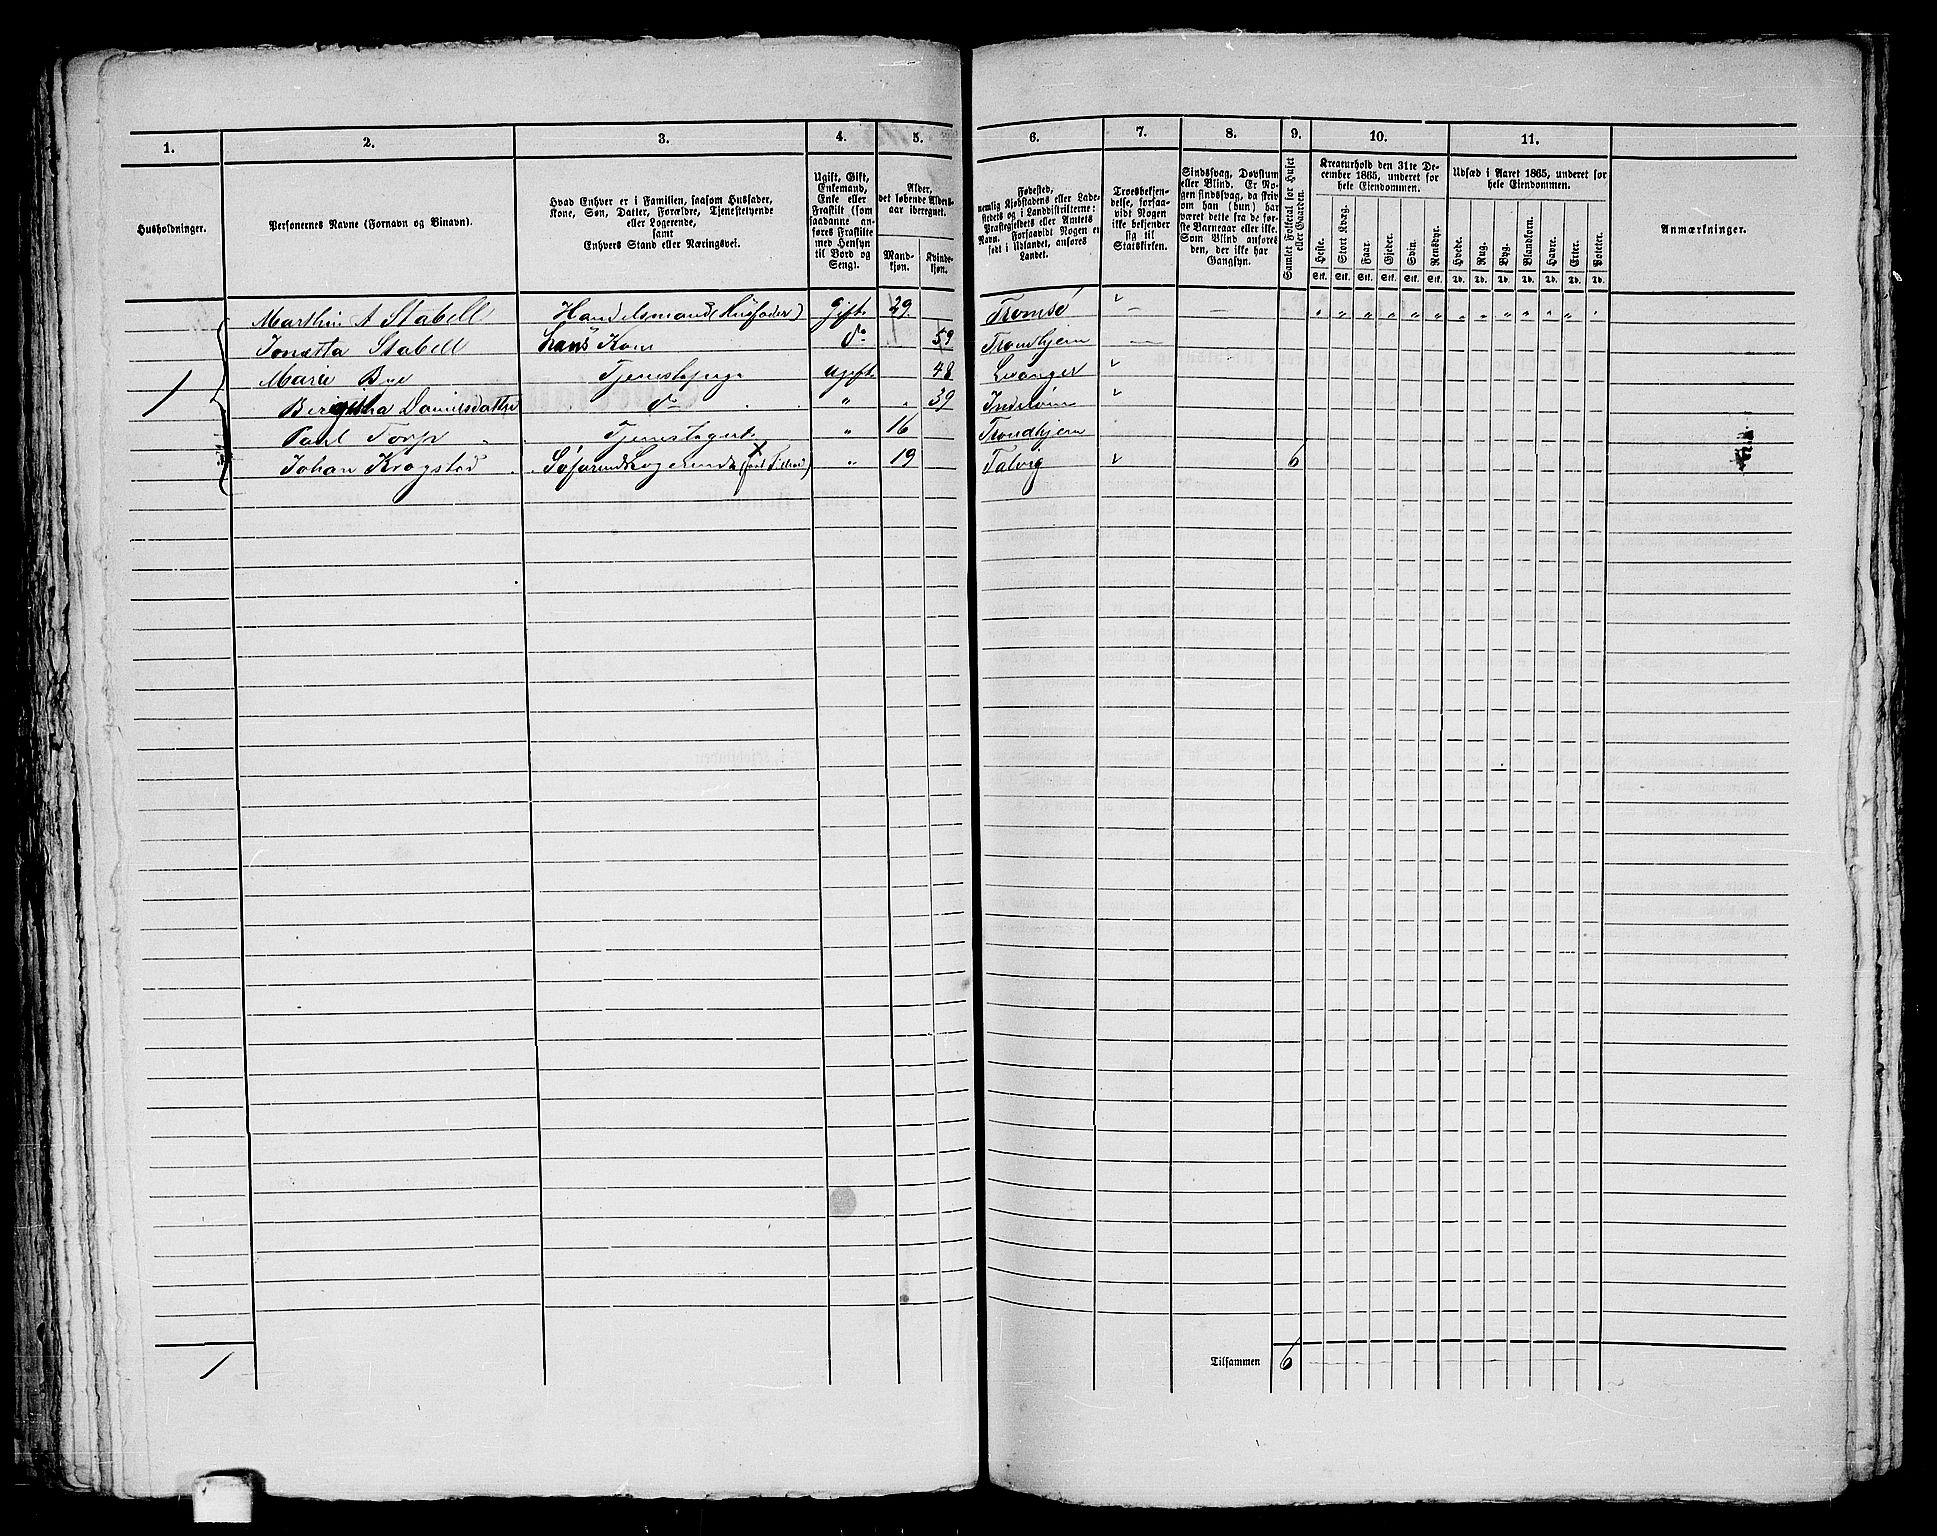 1. 2. 3. 4. 5. 6. 7. 8. 9. 10. 11.
Husholdninger.
Personernes Navne (Fornavn og Binavn).
Hvad Enhver er i Familien, saasom Husfader,
Kone, Søn, Datter, Forældre, Tjenestetyende
eller Logerende,
samt
Enhvers Stand eller Næringsvei.
Ugift, Gift,
Enkemand,
Enke eller
Fraskilt (som
saadanne an-
føres Fraskilte
med Hensyn
til Bord og
Seng).
Alder,
det løbende Alders-
aar iberegnet.
Mand-
kjøn.
Kvinde-
kjøn.
Fødested,
nemlig Kjøbstadens eller Lade-
stedets og i Landdistrikterne:
Præstegjeldets eller Amtets
Navn. Forsaavidt Nogen er
født i Udlandet, anføres
Landet.
Troesbekjen-
delse, forsaa-
vidt Nogen
ikke bekjender
sig til
Statskirken.
Sindssvag, Døvstum
eller Blind. Er No-
gen sindssvag, da skriv
om han (hun) har
været dette fra de før-
ste Barneaar eller ikke.
Som Blind anføres
den, der ikke har
Gangsyn.
Samlet Folketal for Huset
eller Gaarden.
Kreaturhold den 31te De-
cember 1865, underet for
hele Eiendommen.
Heste. Stort Kvæg. Faar. Gjeder. Svin. Rensdyr.
Stk. Stk. Stk. Stk. Stk. Stk.
Udsæd i Aaret 1865, underet for
hele Eiendommen.
Hvede. Rug. Byg. Blandkorn. Havre. Erter. Poteter.
Td. Td. Td. Td. Td. Td. Td.
Anmærkninger.
Marthin A Stabell Handelsmand (Husfader) Gift 29 Tromsø
Stabell hans Kone do 59 Trondhjem
1 Marie Ugift 48 Levanger
Danielsdatter do " 39
Paul Torp " 16 Trondhjem
Johan Krogstad Logerende " 19 Talvig 6
1 Tilsammen 6